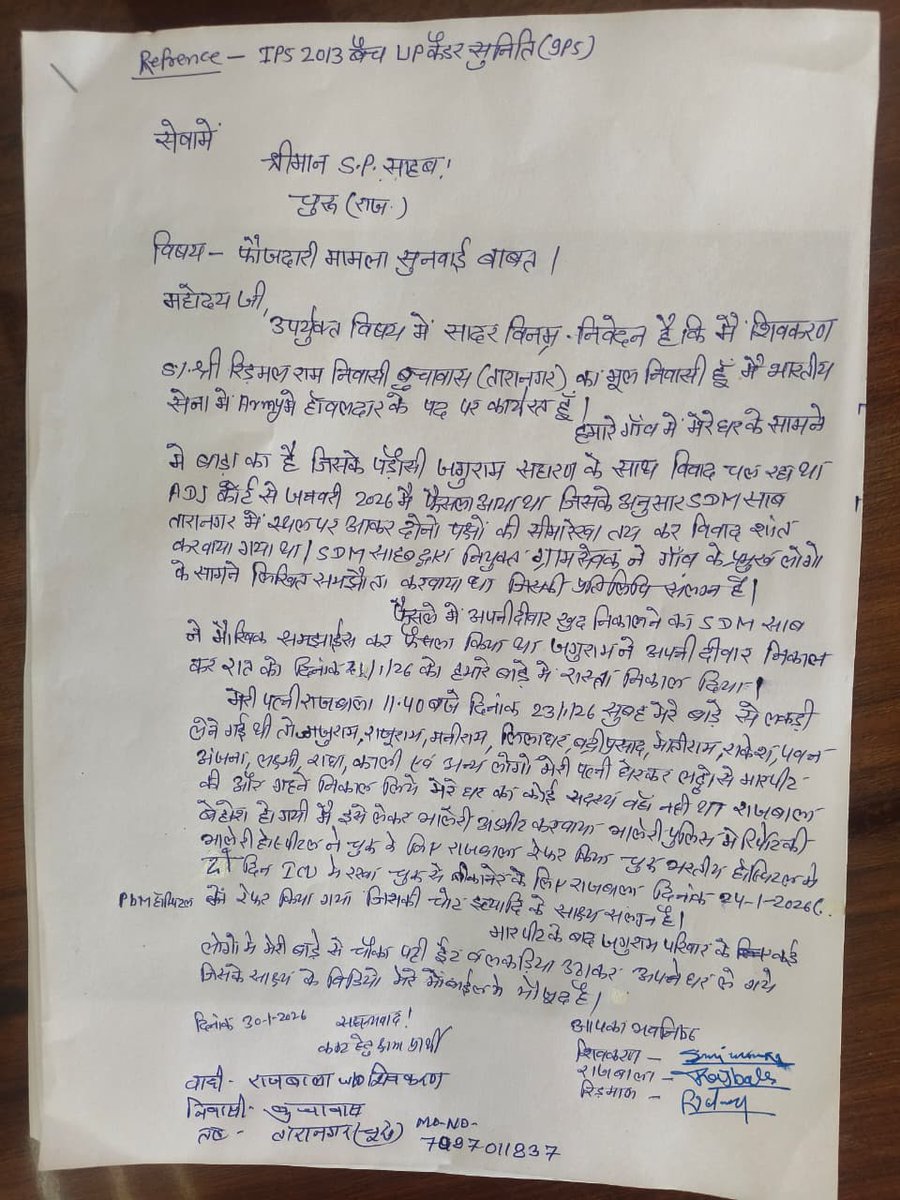 Refrence - IPS 2013 बैच UP कैडर सुनिति (IPS)
सेवामें
श्रीमान S.P. साहब!
चुरू (राज.)
विषय - फौजदारी मामला सुनवाई बाबत।
महोदय जी,
उपर्युक्त विषय में सादर विनम्र निवेदन है कि मैं शिवकरण
S/. श्री रिड़मल राम निवासी बुचावास (तारानगर) का मूल निवासी हूँ मैं भारतीय
सेना में Army मे हॅवलदार के पद पर कार्यरत हूँ।
हमारे गाँव में मेरे घर के सामने
मे बाड़ा का है जिसके पड़ौसी जगुराम सहारण के साथ विवाद चल रहा था
ADJ कोर्ट से जनवरी 2026 मै फैसला आया था जिसके अनुसार SDM साब
तारानगर में स्थल पर आकर दोनो पक्षों की सीमारेखा तय कर विवाद शांत
करवाया गया था। SDM साहब द्वारा नियुक्त ग्राम सेवक ने गाँव के प्रमुख लोगो
के सामने लिखित समझौता करवाया था जिसकी प्रतिलिपि संलग्न है।
फैसले में अपनी दीवार खुद निकालने का SDM साब
ने मौखिक समझाईस कर फैसला किया था जगुराम ने अपनी दीवार निकाल
कर रात को दिनांक /1/26 को हमारे बाड़े में रास्ता निकाल दिया।
मेरी पत्नी राजबाला 11.40 बजे दिनांक 23/1/26 सुबह मेरे बाड़े से लकड़ी
लेने गई थी तो जगुराम, राजूराम, मनीराम, लिलाधर, बद्रीप्रसाद, राकेश, पवन
अंजना, लक्ष्मी, राधा, काली एवं अन्य लोगो मेरी पत्नी घेरकर लठ्ठो से मारपीट
की और गहने निकाल लिये मेरे घर का कोई सदस्य वहाँ नही था राजबाला
बेहोश हो गयी मै इसे लेकर भालेरी अडमीट करवाया भालेरी पुलिस मे रिपोर्ट की
भालेरी होस्पीटल ने चुरू के लिए राजबाला रेफर किया चुरू भरतीय होस्पिटल मे
दो दिन ICU मे रखा चुरू से बीकानेर के लिए राजबाला दिनांक 24-1-2026
PBM होस्पिटल को रेफर किया गया जिसकी चोट इत्यादि के साक्ष्य संलग्न है।
मारपीट के बाद जगुराम परिवार के कई
लोगो मे मेरी बाड़े से चौका पटी ईंट व लकड़िया उठाकर अपने घर ले गये
जिसके साक्ष्य के विडियो मेरे मोबाईल मे मौजूद है।
दिनांक 30-1-2026
सधन्यवाद!
आपका
शिवकरण -
राजबाला - Rajbala
रिड़माल -
वादी - राजबाला w/o शिवकरण
निवासी - बुचावास
तह - तारानगर (चुरू)
MO-NO-
7087011837